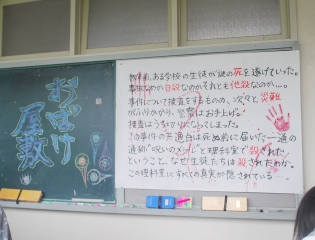 おばけ
屋敷
数年前、ある学校の生徒が謎の死を遂げていった。
事故なのか自殺なのかそれとも他殺なのか…。
事件について捜査をするものの、次々と災難
がふりかかり、警察はお手上げ。
捜査はうちきりになってしまった。
この事件の共通点は死ぬ前に届いた一通の
通称"呪いのメール"と理科室で殺された
ということ。なぜ生徒たちは殺されたのか。
この理科室にすべての真実が隠されている